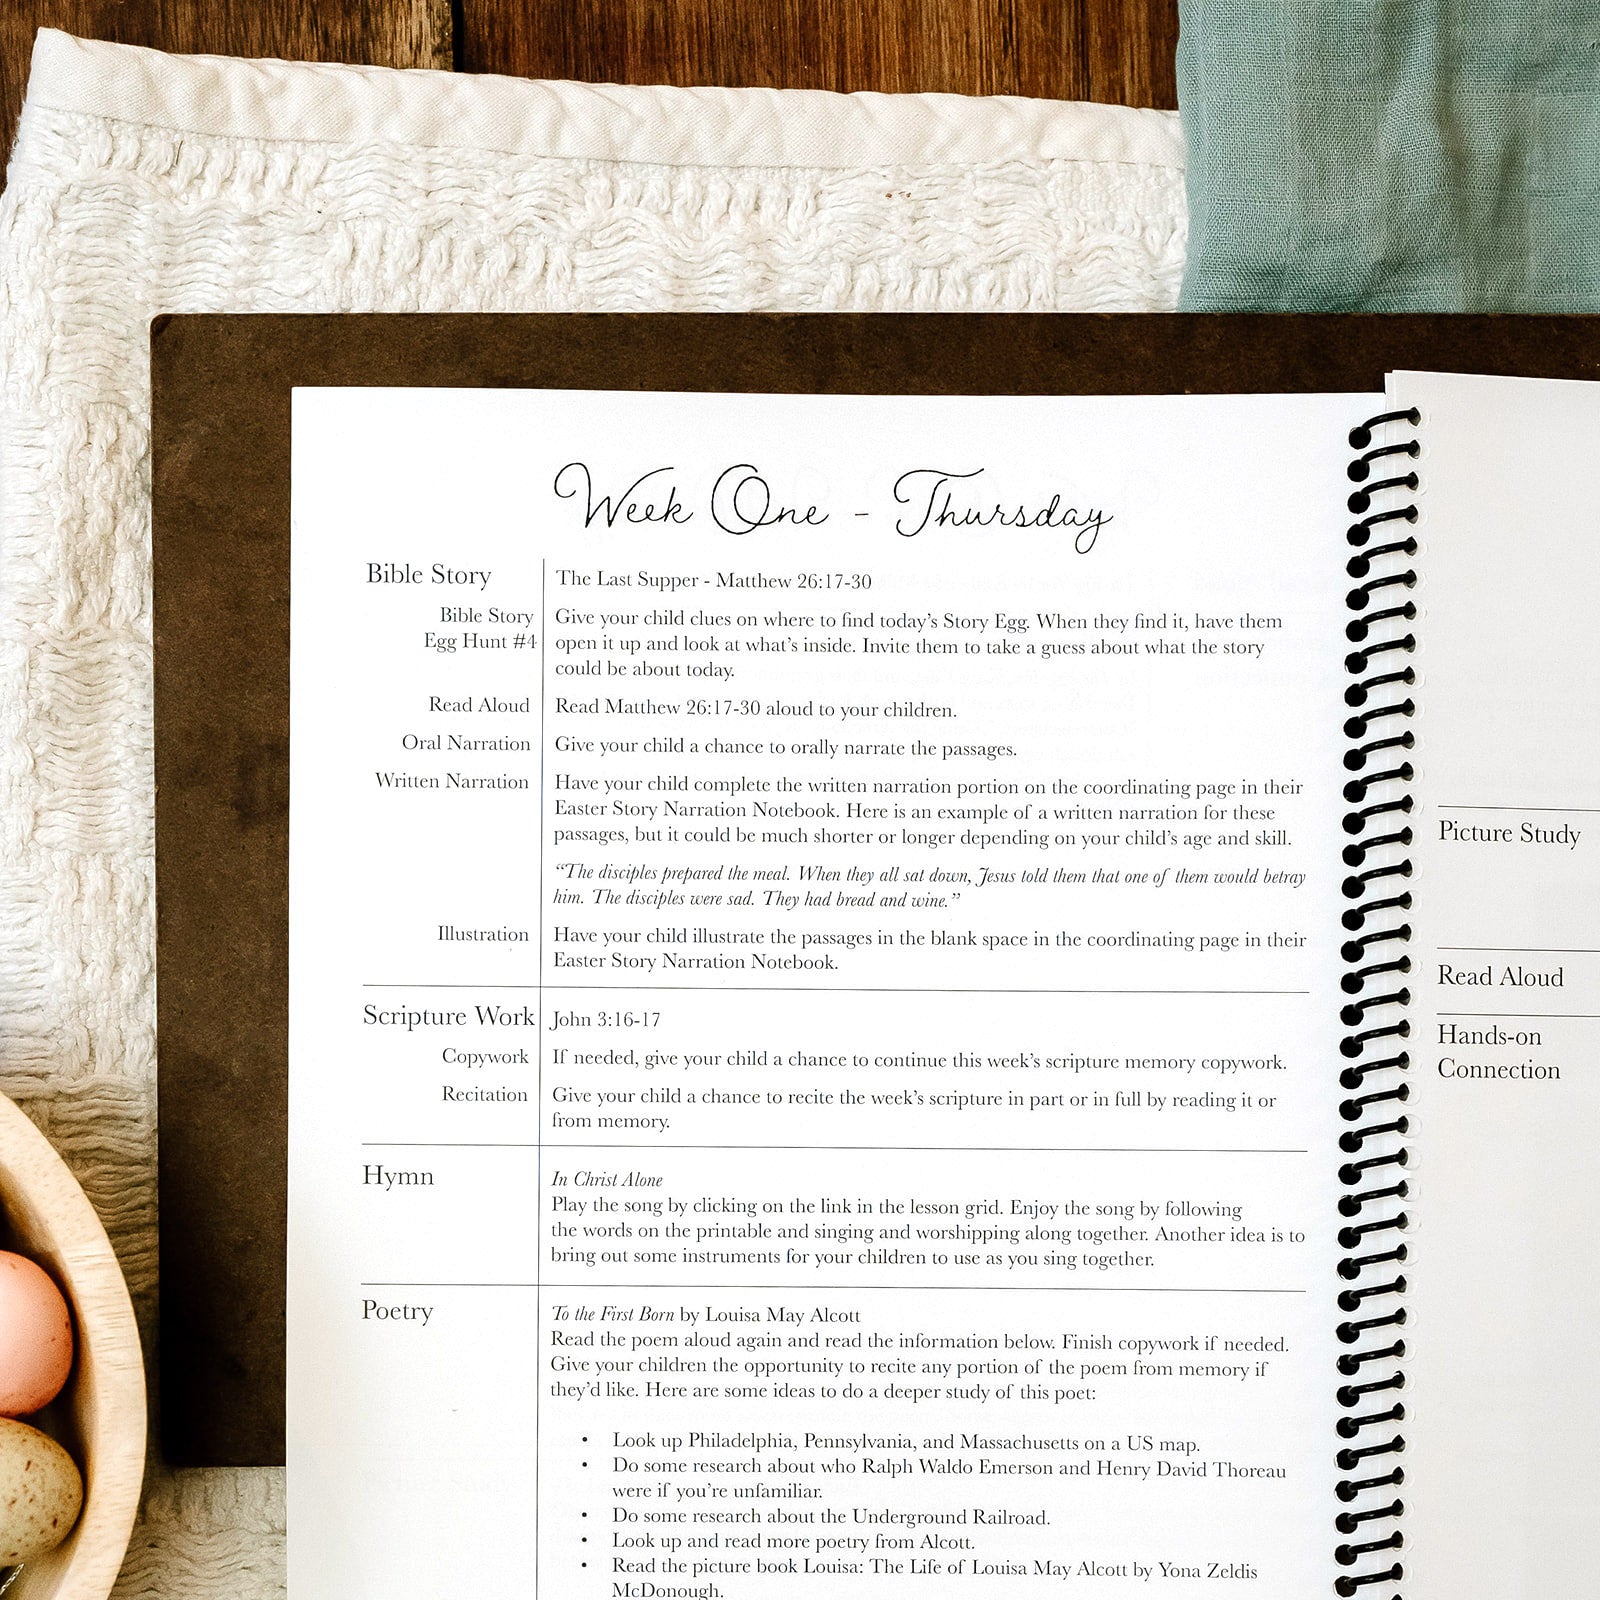 Week One - Thursday
Bible Story
The Last Supper - Matthew 26:17-30
Bible Story
Egg Hunt #4
Give your child clues on where to find today's Story Egg. When they find it, have them
open it up and look at what's inside. Invite them to take a guess about what the story
could be about today.
Read Aloud
Read Matthew 26:17-30 aloud to your children.
Oral Narration
Give your child a chance to orally narrate the passages.
Written Narration
Have your child complete the written narration portion on the coordinating page in their
Easter Story Narration Notebook. Here is an example of a written narration for these
passages, but it could be much shorter or longer depending on your child's age and skill.
"The disciples prepared the meal. When they all sat down, Jesus told them that one of them would betray
him. The disciples were sad. They had bread and wine."
Illustration
Have your child illustrate the passages in the blank space in the coordinating page in their
Easter Story Narration Notebook.
Scripture Work
John 3:16-17
Copywork
If needed, give your child a chance to continue this week's scripture memory copywork.
Recitation
Give your child a chance to recite the week's scripture in part or in full by reading it or
from memory.
Hymn
In Christ Alone
Play the song by clicking on the link in the lesson grid. Enjoy the song by following
the words on the printable and singing and worshipping along together. Another idea is to
bring out some instruments for your children to use as you sing together.
Poetry
To the First Born by Louisa May Alcott
Read the poem aloud again and read the information below. Finish copywork if needed.
Give your children the opportunity to recite any portion of the poem from memory if
they'd like. Here are some ideas to do a deeper study of this poet:
• Look up Philadelphia, Pennsylvania, and Massachusetts on a US map.
• Do some research about who Ralph Waldo Emerson and Henry David Thoreau
were if you're unfamiliar.
• Do some research about the Underground Railroad.
• Look up and read more poetry from Alcott.
• Read the picture book Louisa: The Life of Louisa May Alcott by Yona Zeldis
McDonough.
Picture Study
Read Aloud
Hands-on
Connection